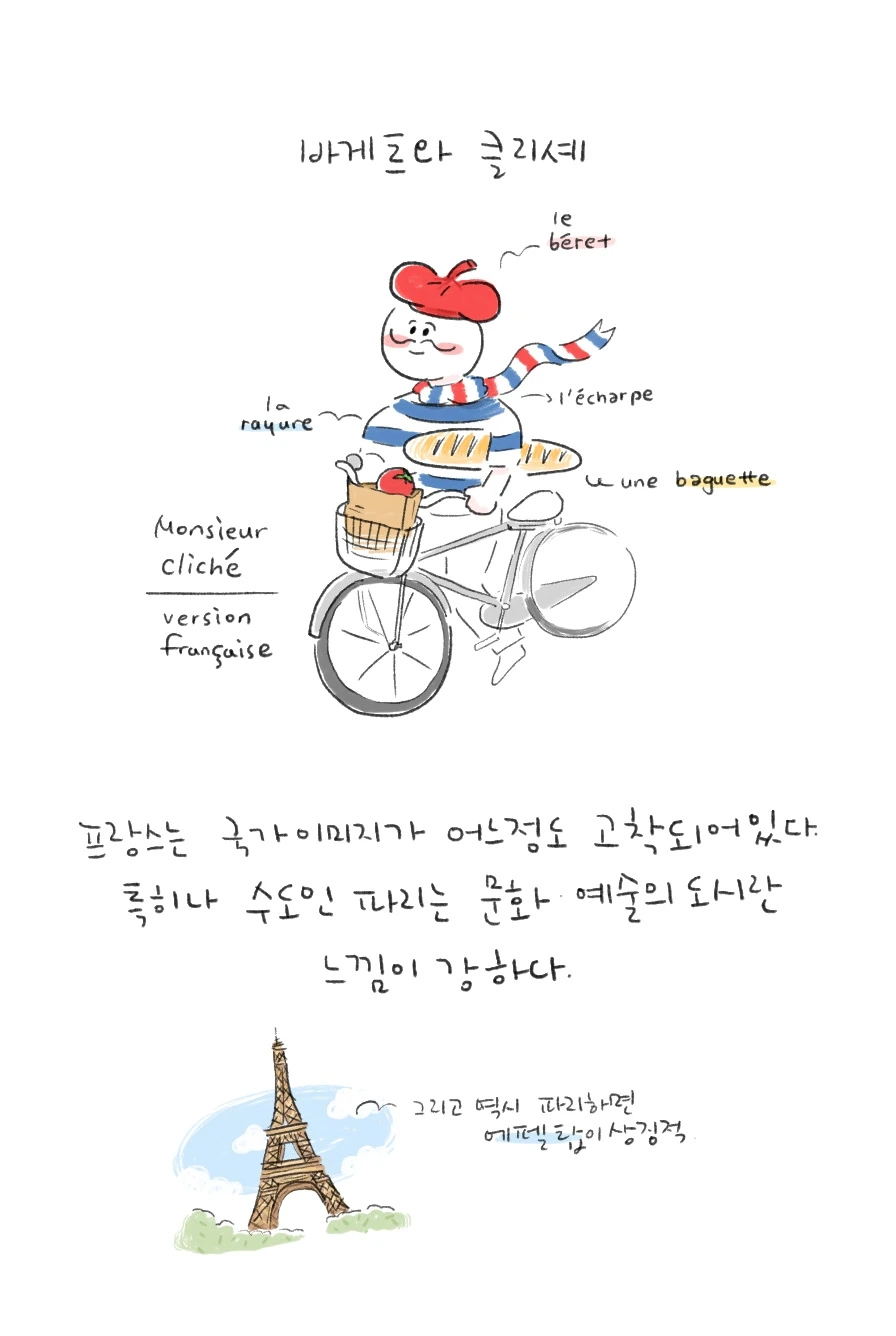 바게트와 클리셰
le
béret
la
rayure
l'écharpe
une baguette
Monsieur
cliché
version
française
프랑스는 국가이미지가 어느정도 고착되어있다.
특히나 수도인 파리는 문화·예술의 도시란
느낌이 강하다.
그리고 역시 파리하면
에펠탑이 상징적